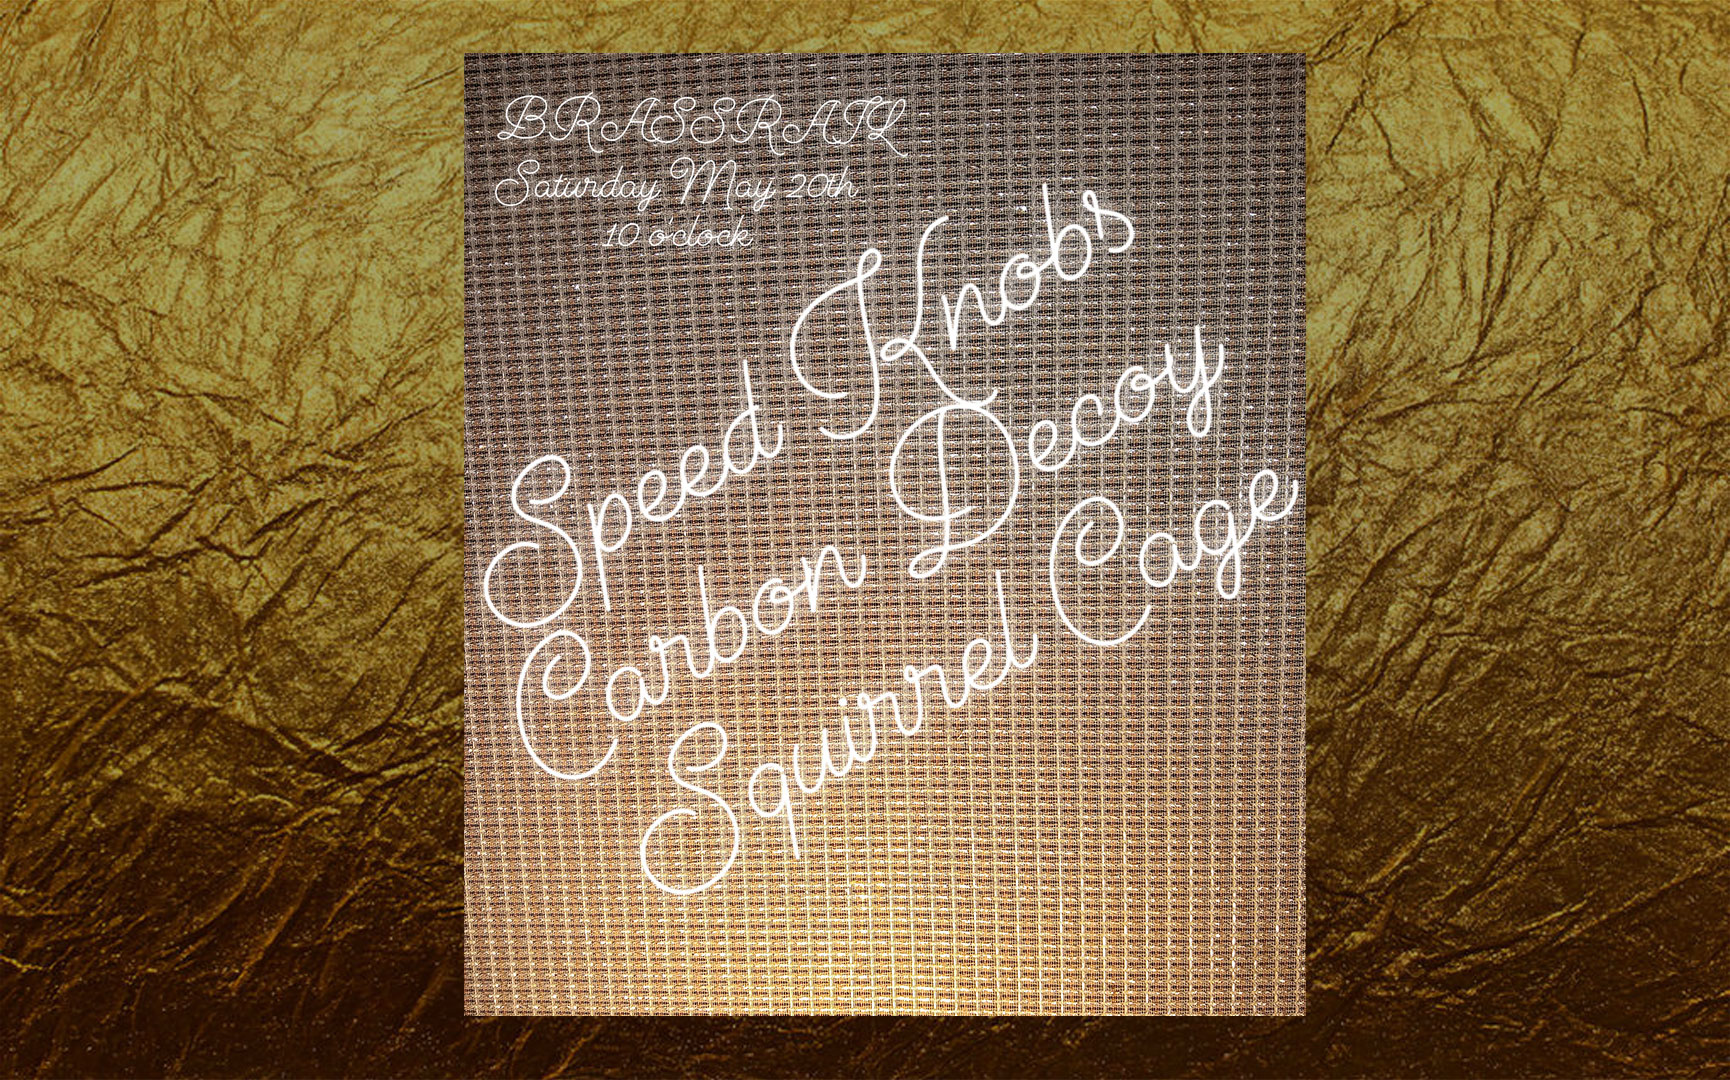 BRASSRAIL
Saturday May 20th
10 o'clock
Speed Knobs
Carbon Decoy
Squirrel Cage